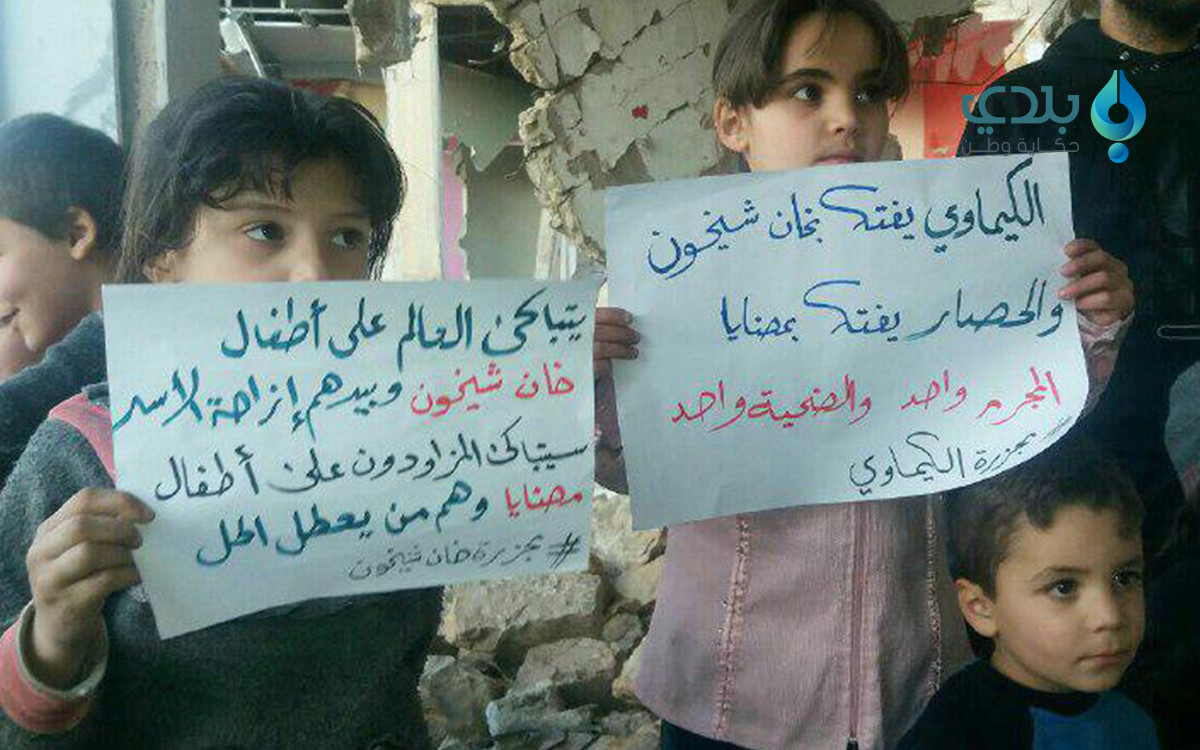 بلدي
حكاية وطن
الكيماوي يفتك بخان شيخون
والحصار يفتك بمضايا
المجرم واحد والضحية واحد
#مجزرة الكيماوي
يتباكى العالم على أطفال
خان شيخون وبيدهم إزاحة الأسد
سيتباكى المزاودون على أطفال
مضايا وهم من يعطل الحل
#مجزرة خان شيخون